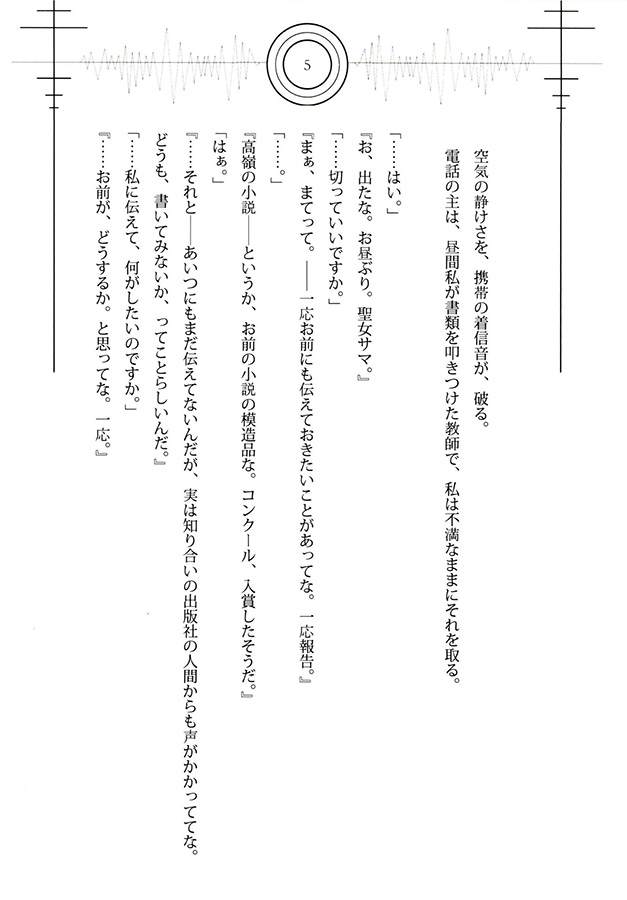 5
空気の静けさを、携帯の着信音が、破る。
電話の主は、昼間私が書類を叩きつけた教師で、私は不満なままにそれを取る。
「……はい。」
『お、出たな。お昼ぶり。聖女サマ。』
「……切っていいですか。」
『まぁ、まてって。――一応お前にも伝えておきたいことがあってな。一応報告。』
「……。」
『高嶺の小説――というか、お前の小説の模造品な。コンクール、入賞したそうだ。』
「はぁ。」
『……それと――あいつにもまだ伝えてないんだが、実は知り合いの出版社の人間からも声がかかっててな。
どうも、書いてみないか、ってことらしいんだ。』
「……私に伝えて、何がしたいのですか。」
『……お前が、どうするか。と思ってな。一応。』